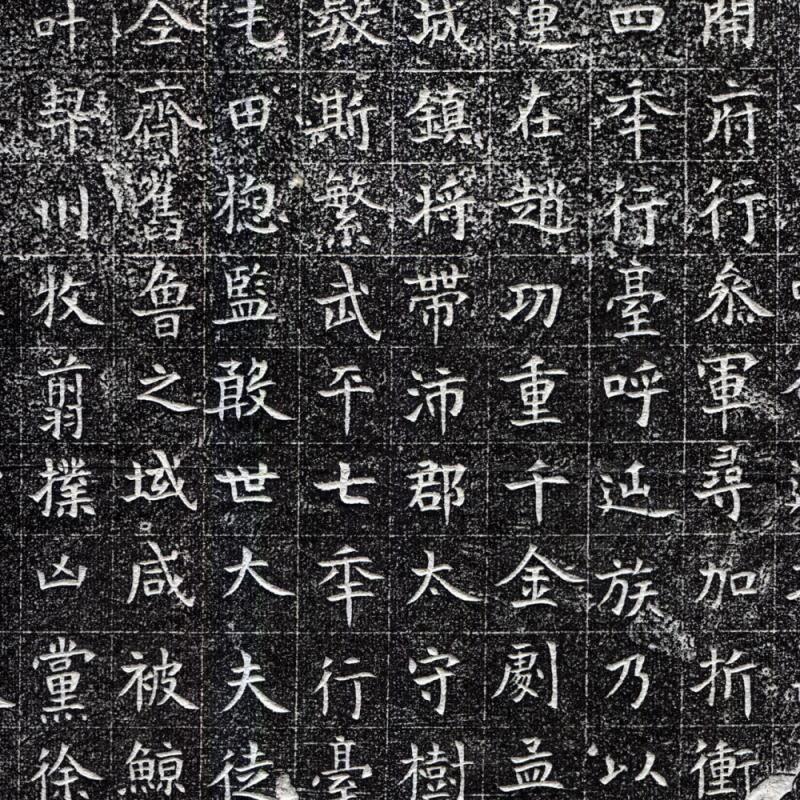 開府行叅軍尋加折衝
四年行臺呼延族乃以
連在趙功重千金劇孟
城鎮將帶沛郡太守樹
斯繁武平七年行臺
毛田抱監敢世大夫徒
令齊舊魯之域咸被鯨
叶契州牧翦撲凶黨徐